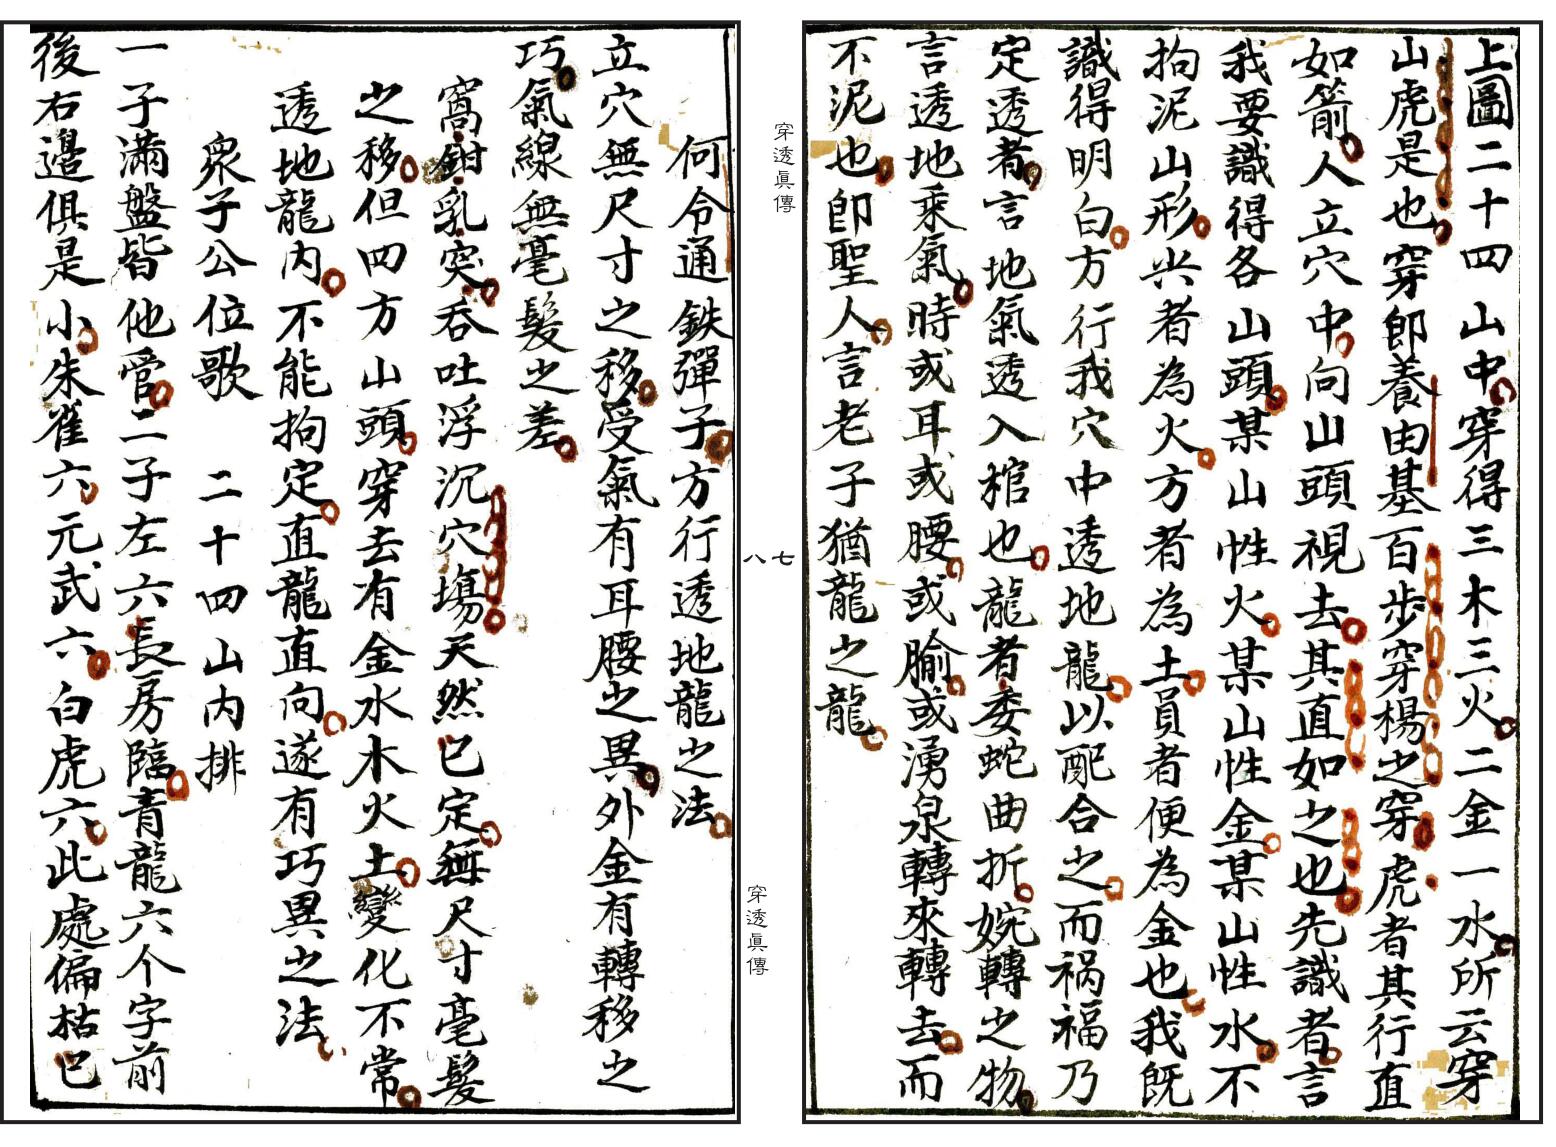 上圖二十四山中穿得三木三火二金一水所云穿
山虎是也穿即養由基百步穿楊之穿虎者其行直
如箭人立穴中向山頭視去其直如之也先識者言
我要識得各山頭某山性火某山性金某山性水不
拘泥山形尖者為火方者為土員者便為金也我既
識得明白方行我穴中透地龍以配合之而禍福乃
定透者言地氣透入棺也龍者委蛇曲折婉轉之物
言透地乘氣時或耳或腰或腧或湧泉轉來轉去而
不泥也即聖人言老子猶龍之龍
穿透眞傳
八七
穿透眞傳
何令通鉄彈子方行透地龍之法
立穴無尺寸之移受氣有耳腰之異外金有轉移之
巧氣線無毫髮之差
窩鉗乳突吞吐浮沉穴塲天然已定無尺寸毫髮
之移但四方山頭穿去有金水木火土變化不常
透地龍內不能拘定直龍直向遂有巧異之法
衆子公位歌 二十四山内排
一子滿盤皆他管二子左六長房臨青龍六个字前
後右邉俱是小朱雀六元武六白虎六此處偏枯已